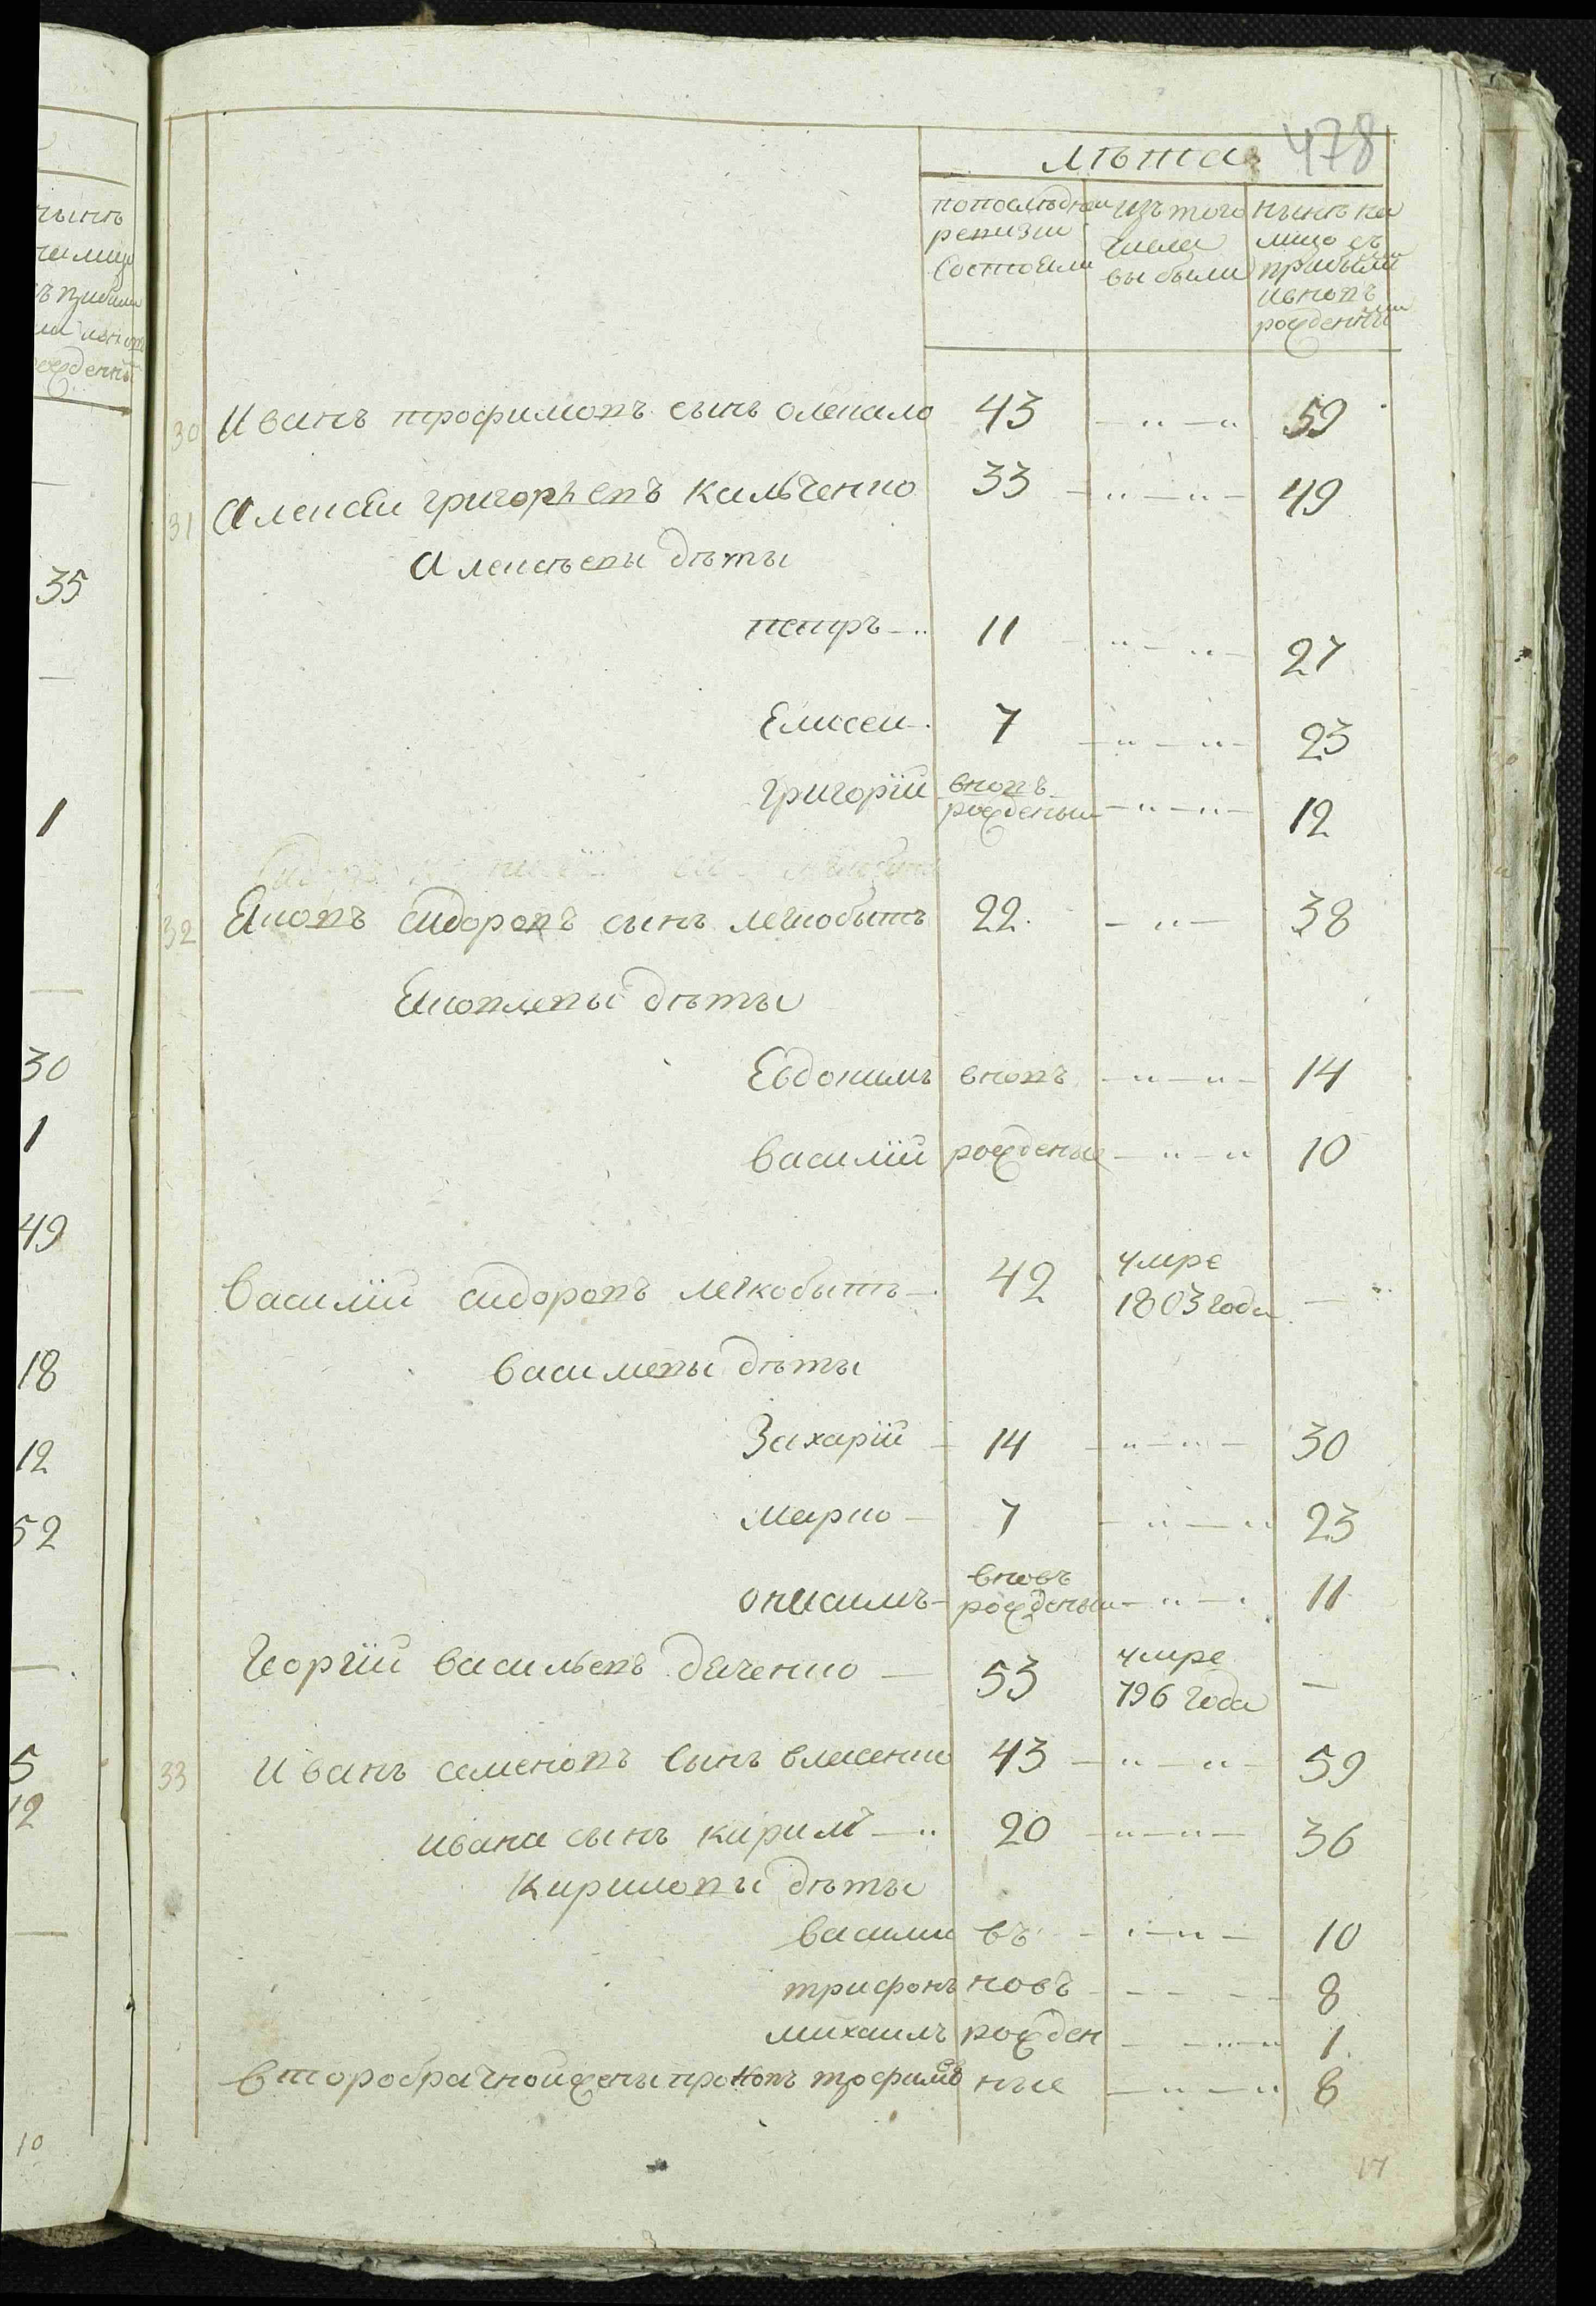 478
лѣта
попоследнеи
ревизии
состояли
изъ того
числа
выбыли
нынѣ на
лицо съ
прибылы
ивновъ
рожденными
30 Иванъ трофимовъ сынъ олекало 43 59
31 Алексѣи григорьевъ кальченко 33 49
Алексѣевы дѣты
петръ 11 27
Елисеи 7 23
григорїй вновъ рожденыи 12
32 Яковъ сидоровъ сынъ легкобытъ 22 38
Яковлевы дѣты
Евдокимъ вновъ 14
василїй рожденые 10
василїй сидоровъ легкобытъ 42 умре 1803 года —
василевы дѣты
Захарїй 14 30
марко 7 23
онисимъ вновъ рожденыи 11
Георгїй васильевъ дяченко 53 умре 796 года —
33 Иванъ семеновъ сынъ власенко 43 59
ивана сынъ кирилъ 20 36
Кириловы дѣты
васили въ 10
трифонъ новъ 8
михаилъ рожден 1
второбрачной жены прокопъ трофимовъ ные 8
17
чынѣ
35
1
30
1
49
18
12
52
5
12
10